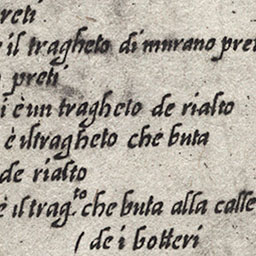 preti
il tragheto di murano pret
preti
i è un tragheto de rialto
è il tragheto che buta
de rialto
è il trag.to che buta alla calle
( de i botteri